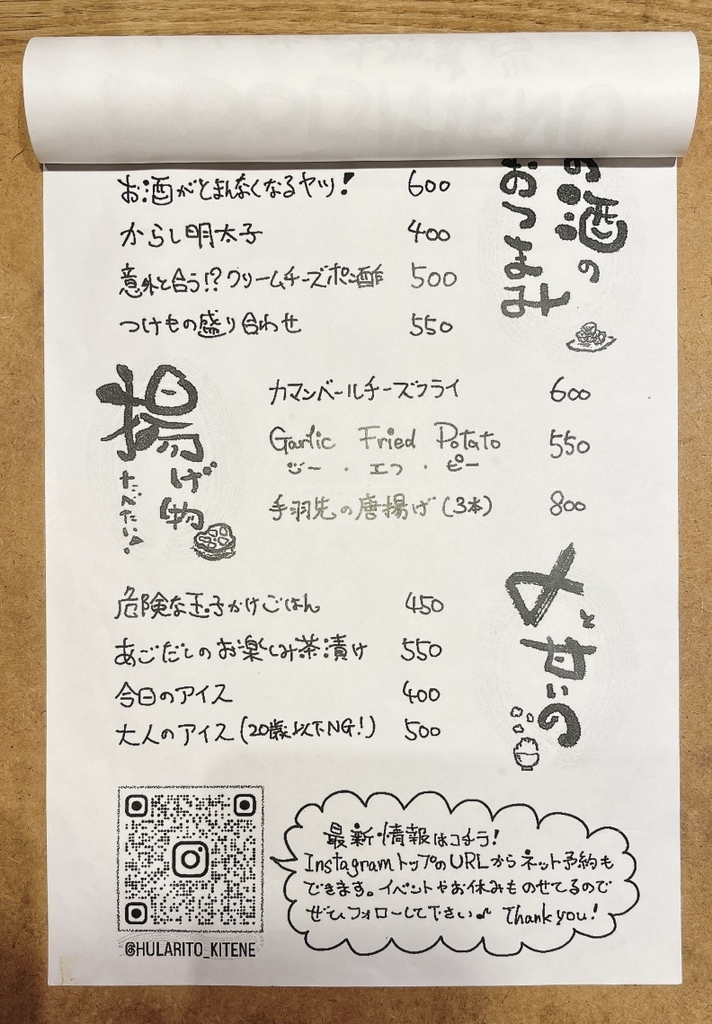 の酒の
おつまみ
お酒がとまんなくなるヤツ! 600
からし明太子 400
意外と合う!?クリームチーズポン酢 500
つけもの盛り合わせ 550
揚げ物
たべたい♪
カマンベールチーズフライ 600
Garlic Fried Potato 550
ジー・エフ・ピー
手羽先の唐揚げ(3本) 800
〆と甘いの
危険な玉子かけごはん 450
あごだしのお楽しみ茶漬け 550
今日のアイス 400
大人のアイス(20歳以下NG!) 500
最新情報はコチラ!
InstagramトップのURLからネット予約も
できます。イベントやお休みものせてるので
ぜひフォローして下さい♪ Thank you!
@HULARITO_KITENE